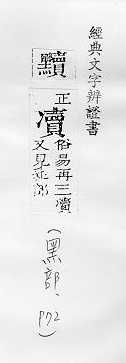 經典文字辨證書
黷
正
瀆
俗易再三瀆
又見
(黑部、P72)